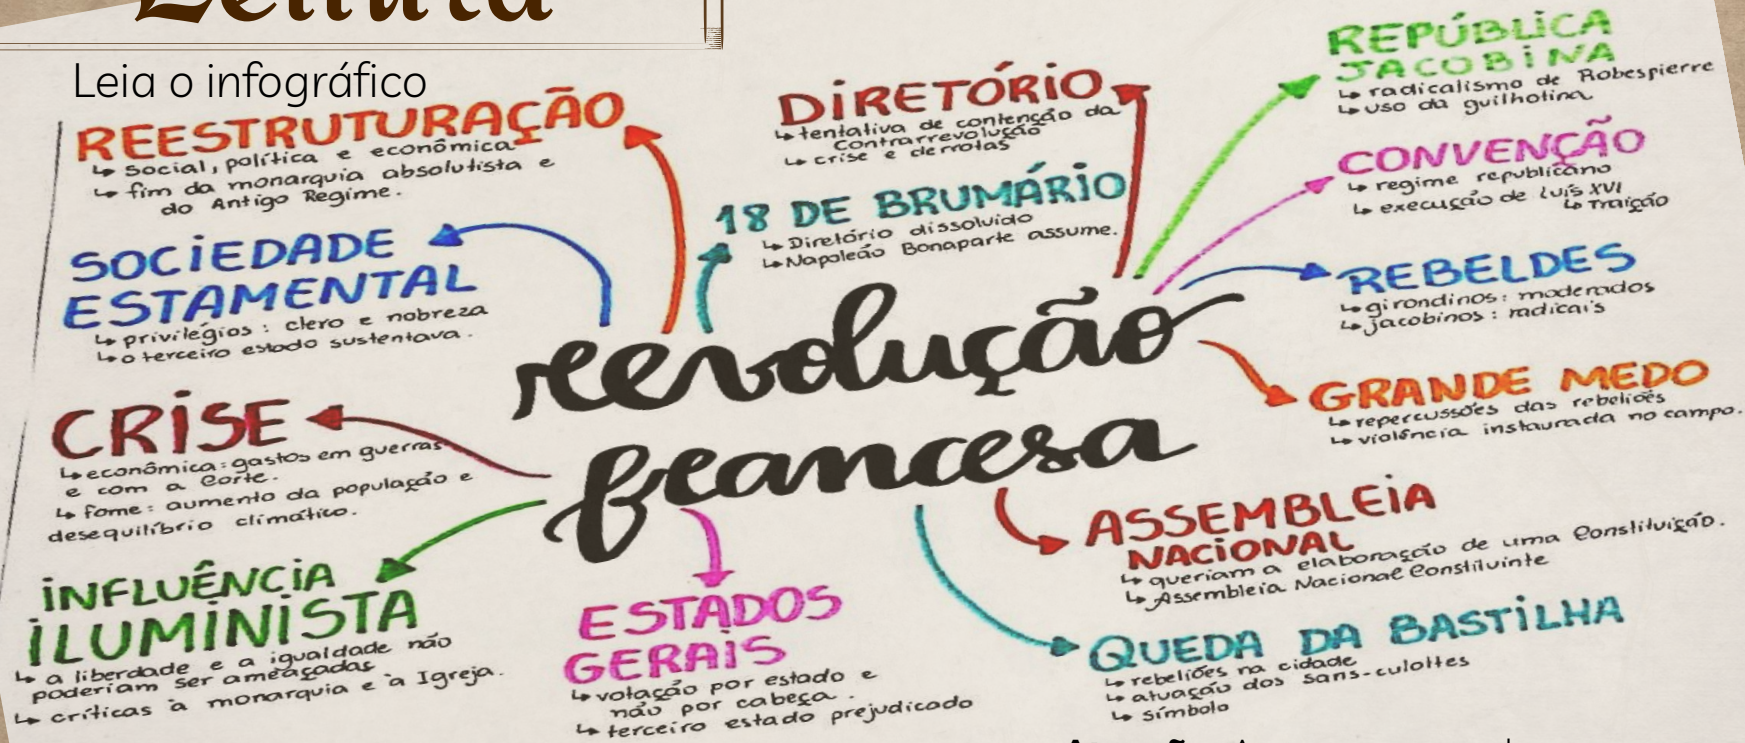 Leitura
Leia o infográfico
REESTRUTURAÇÃO
↳ Social, política e econômica
↳ fim da monarquia absolutista e
do Antigo Regime.
SOCIEDADE
ESTAMENTAL
↳ privilégios: clero e nobreza
↳ o terceiro estado sustentava.
CRISE
↳ econômica: gastos em guerras
e com a Corte.
↳ fome: aumento da população e
desequilíbrio climático.
INFLUÊNCIA
ILUMINISTA
↳ a liberdade e a igualdade não
poderiam ser ameaçadas
↳ críticas à monarquia e à Igreja.
DIRETÓRIO
↳ tentativa de contenção da
Contrarrevolução
↳ crise e derrotas
18 DE BRUMÁRIO
↳ Diretório dissolvido
↳ Napoleão Bonaparte assume.
revolução
francesa
ESTADOS
GERAIS
↳ votação por estado e
não por cabeça.
↳ terceiro estado prejudicado
REPÚBLICA
JACOBINA
↳ radicalismo de Robespierre
↳ uso da guilhotina
CONVENÇÃO
↳ regime republicano
↳ execução de Luís XVI
↳ Traição
REBELDES
↳ girondinos: moderados
↳ jacobinos: radicais
GRANDE MEDO
↳ repercussões das rebeliões
↳ violência instaurada no campo.
ASSEMBLEIA
NACIONAL
↳ queriam a elaboração de uma Constituição.
↳ Assembleia Nacional Constituinte
QUEDA DA BASTILHA
↳ rebeliões na cidade
↳ atuação dos sans-culottes
↳ símbolo